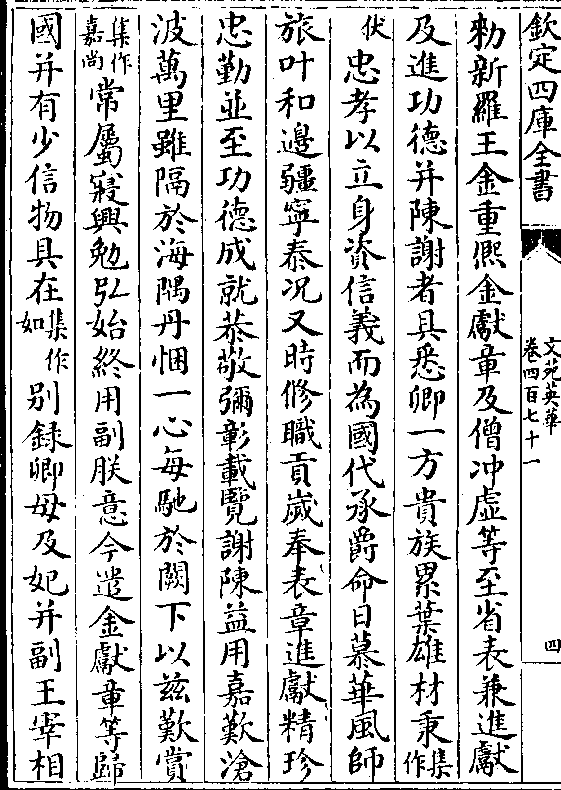 欽定四庫全書
文苑英華
卷四百七十一
四
勑新羅王金重熈金獻章及僧冲虚等至省表兼進獻
及進功德并陳謝者具悉卿一方貴族累葉雄材秉集作
伏忠孝以立身資信義而為國代承爵命日慕華風師
旅叶和邊疆寧泰况又時修職貢歲奉表章進獻精珍
忠勤並至功德成就恭敬彌彰載覽謝陳益用嘉歎滄
波萬里雖隔於海隅丹悃一心每馳於闕下以兹歎賞
集作嘉尚常屬寢興勉弘始終用副朕意今遣金獻章等歸
國并有少信物具在集作如别録卿母及妃并副王宰相